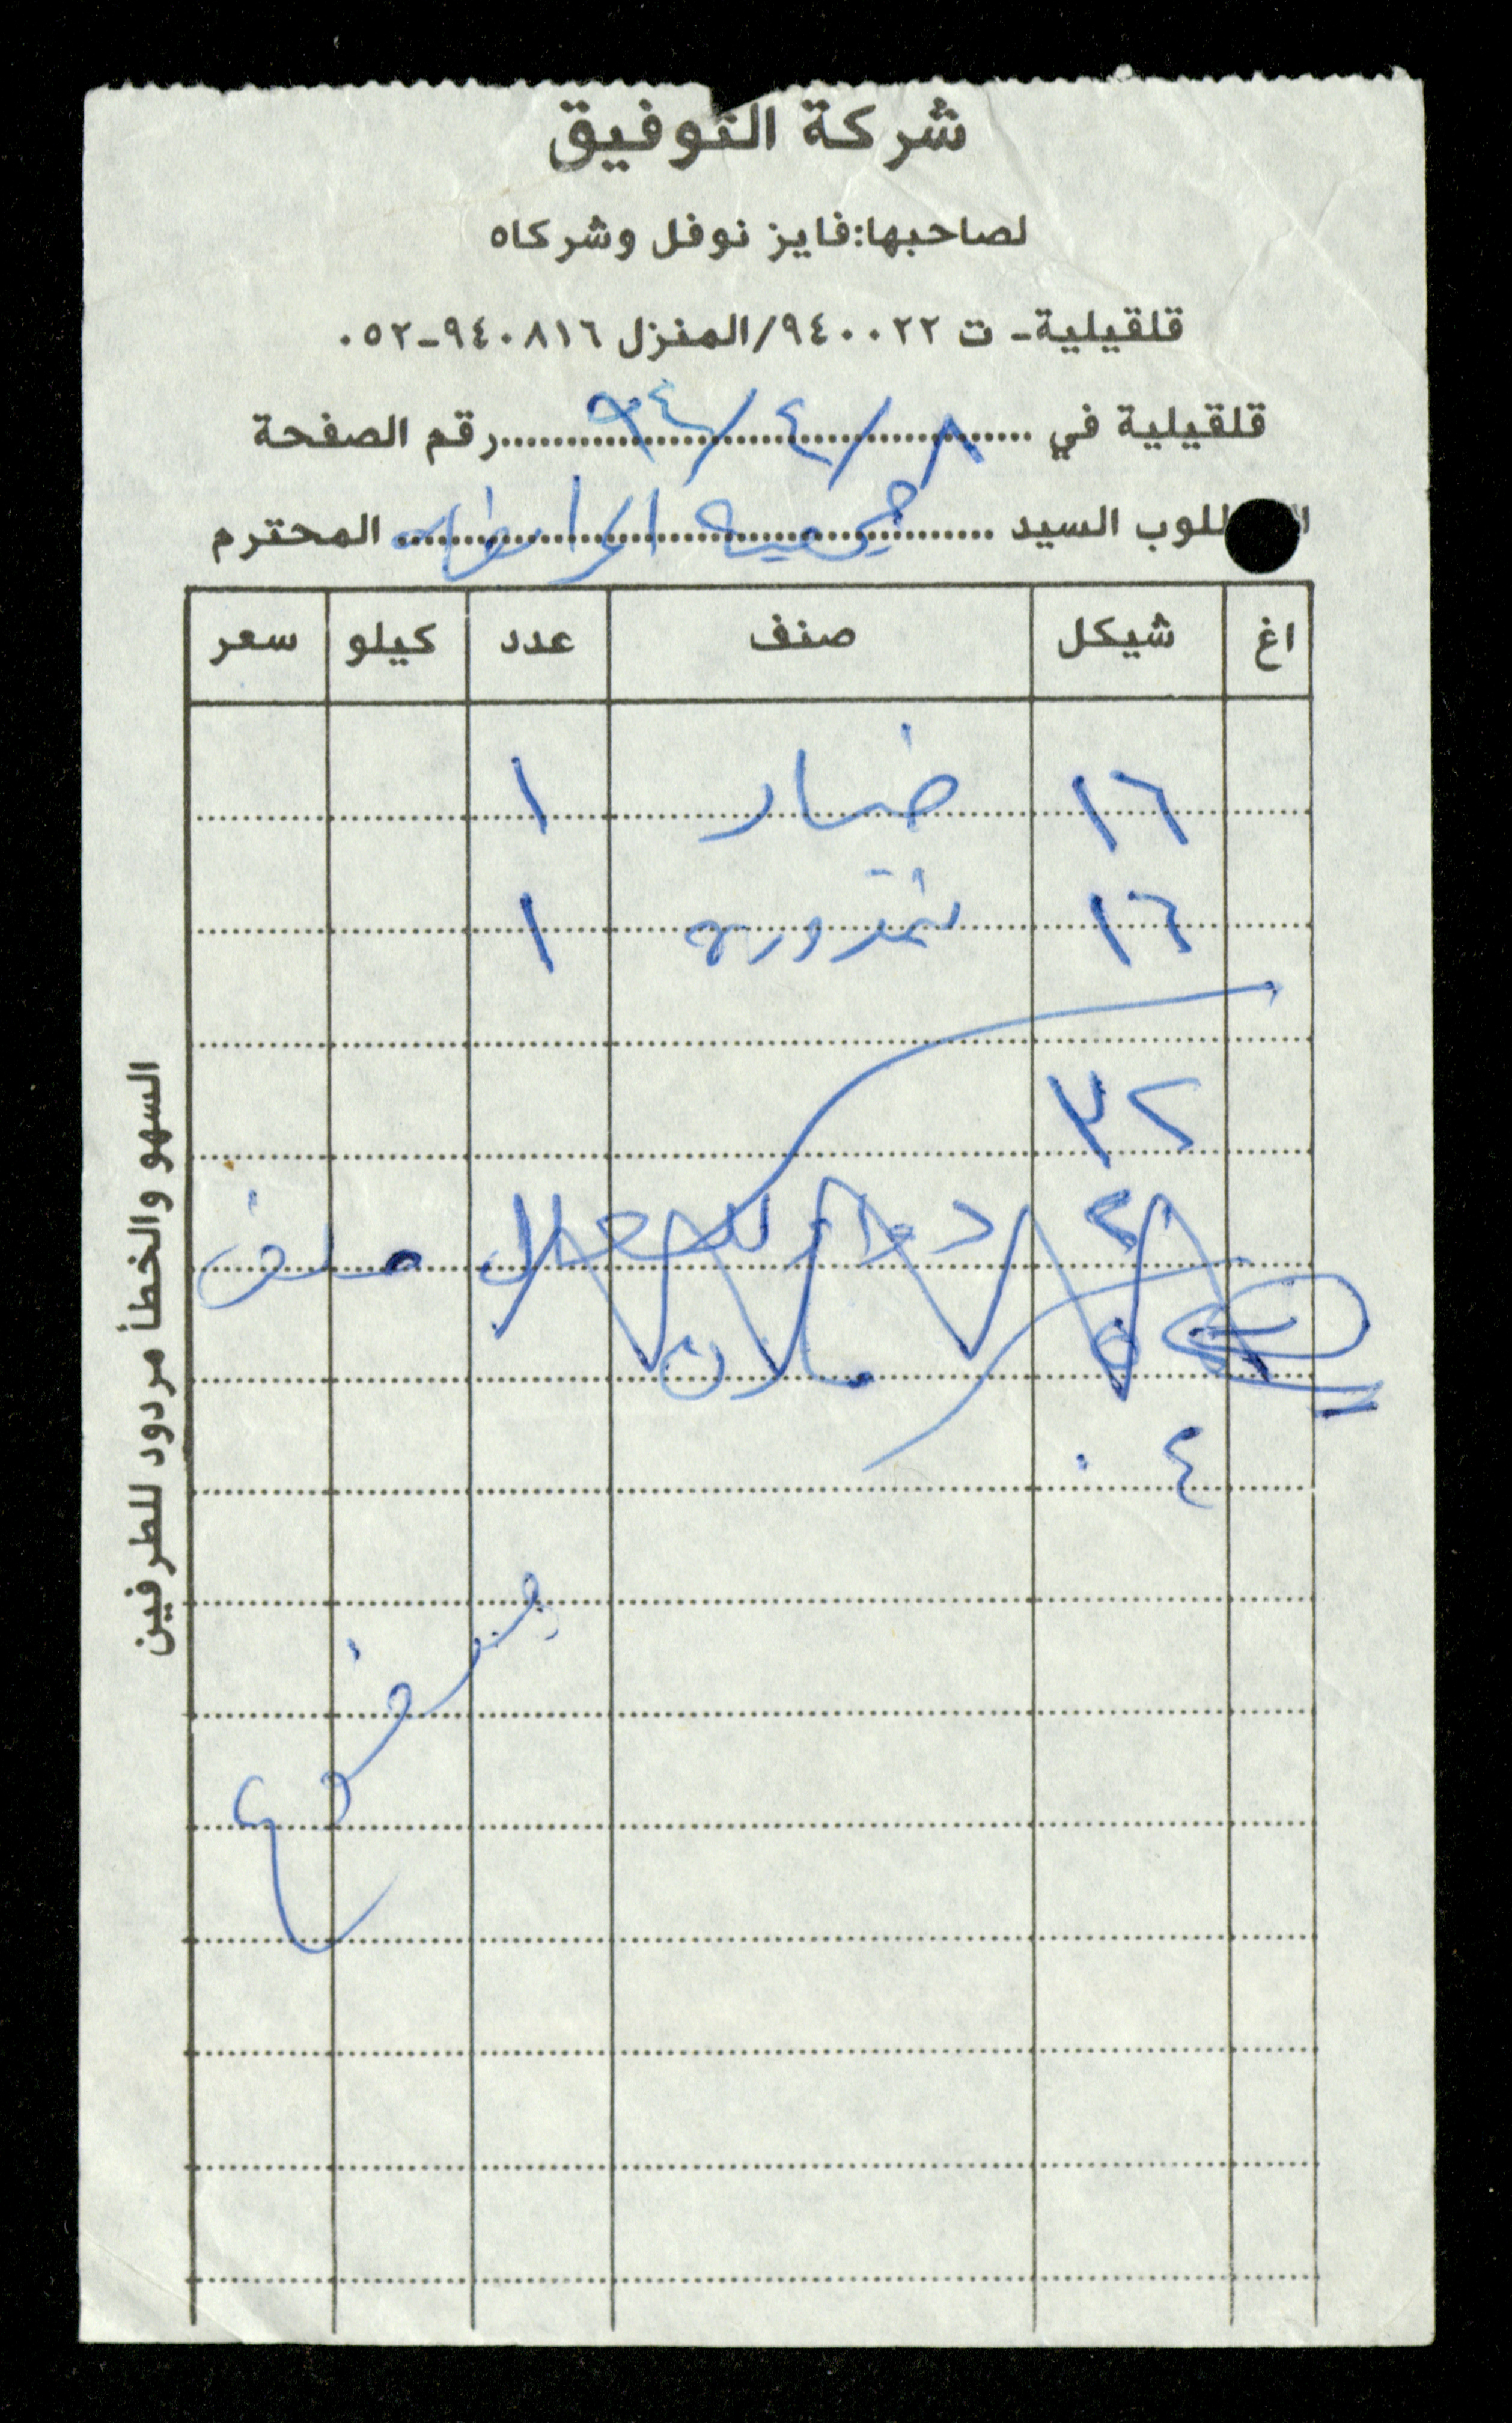 شركة التوفيق
لصاحبها: فايز نوفل وشركاه
قلقيلية - ت ٩٤٠٠٢٢/المنزل ٩٤٠٨١٦-٠٥٢
قلقيلية في ٨/٤/٩٤ رقم الصفحة
المطلوب السيد جمعية المرابطات المحترم
اغ شيكل صنف عدد كيلو سعر
١٦ خيار ١
١٦ بندورة ١
٣٢
٤٠
السهو والخطأ مردود للطرفين